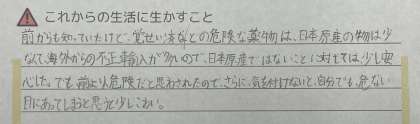 これからの生活に生かすこと
前からも知っていたけど、覚せい済などの危険な薬物は、日本原産の物は少
なくて、海外からの不正輸入が多いので、日本原産ではないことに対しては少し安
心した。でも、前より危険だと思わされたので、さらに、気を付けないと、自分でも、危ない
目にあってしまうと思うと少しこわい。